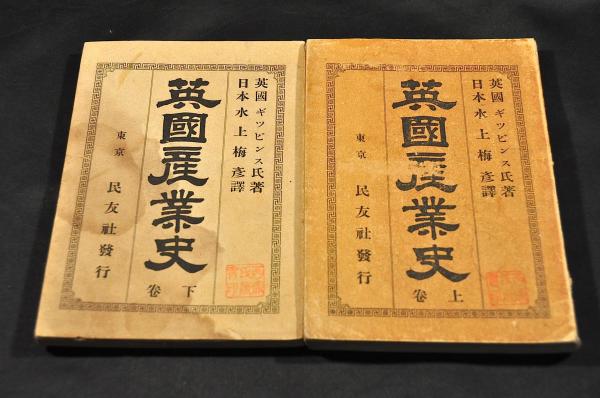 英國ギツビンス氏著
日本水上梅彦譯
英國産業史
上卷
東京 民友社發行
英國ギツビンス氏著
日本水上梅彦譯
英國産業史
下卷
東京 民友社發行